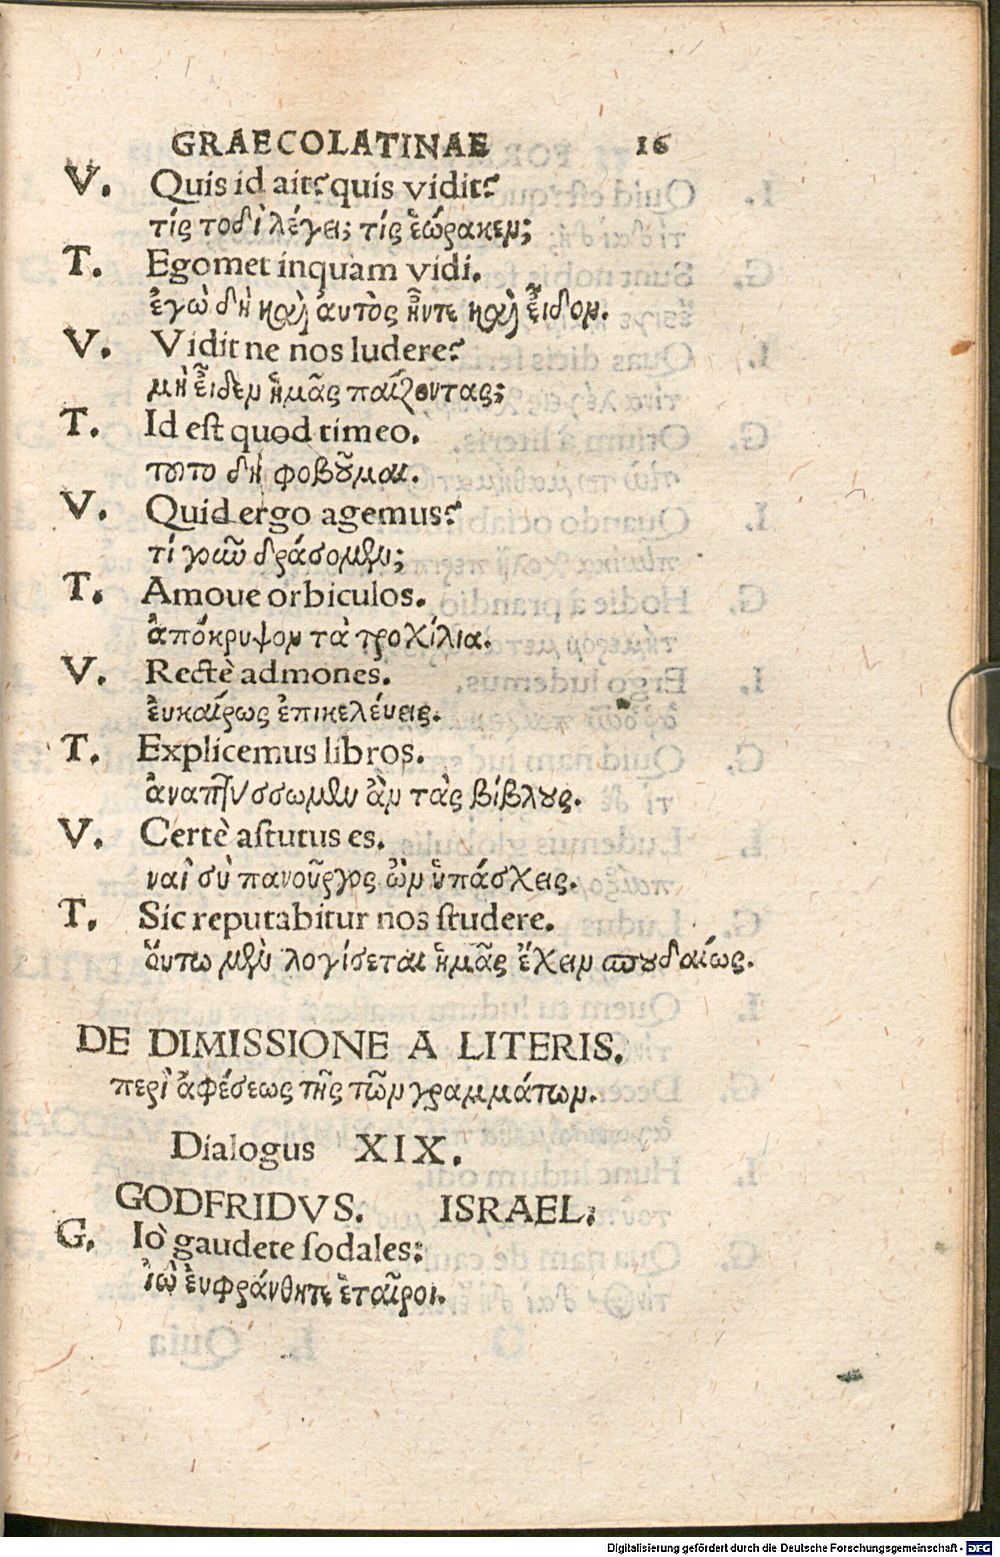 GRAECOLATINAE 16
V. Quis id ait? quis vidit?
τίς τοδὶ λέγει; τίς ἑώρακεν;
T. Egomet inquam vidi.
ἐγὼ δὴ καὶ ἀυτὸς ἦντε καὶ ἔιδον.
V. Vidit ne nos ludere?
μὴ ἔιδεν ἡμᾶς παίζοντας;
T. Id est quod timeo.
τοῦτο δὴ φοβοῦμαι.
V. Quid ergo agemus?
τί γοῶν δράσομεν;
T. Amoue orbiculos.
ἀπόκρυψον τὰ τροχίλια.
V. Rectè admones.
ἐυκαίρως ἐπικελέυεις.
T. Explicemus libros.
ἀναπτύσσωμεν ἂν τὰς βίβλους.
V. Certè astutus es.
ναὶ σὺ πανοῦργος ὢν ὑπάσχεις.
T. Sic reputabitur nos studere.
ὅυτω μὲν λογίσεται ἡμᾶς ἔχειν σπουδαίως.
DE DIMISSIONE A LITERIS.
περὶ ἀφέσεως τῆς τῶν γραμμάτων.
Dialogus XIX.
GODFRIDVS. ISRAEL.
G. Iò gaudete sodales:
ἰὼ ἐυφράνθητε ἑταῖροι.
Digitalisierung gefördert durch die Deutsche Forschungsgemeinschaft - DFG